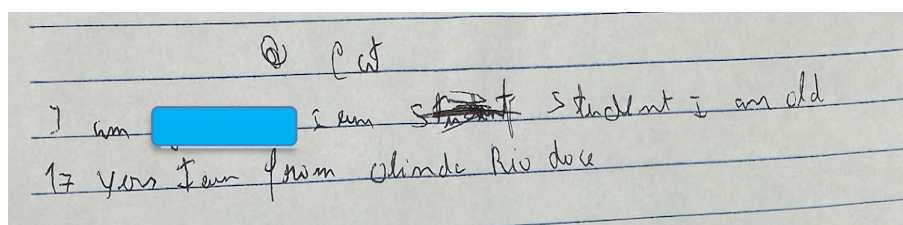 a) Cat
I am i am student I am old
17 yers I am from olinda Rio doce